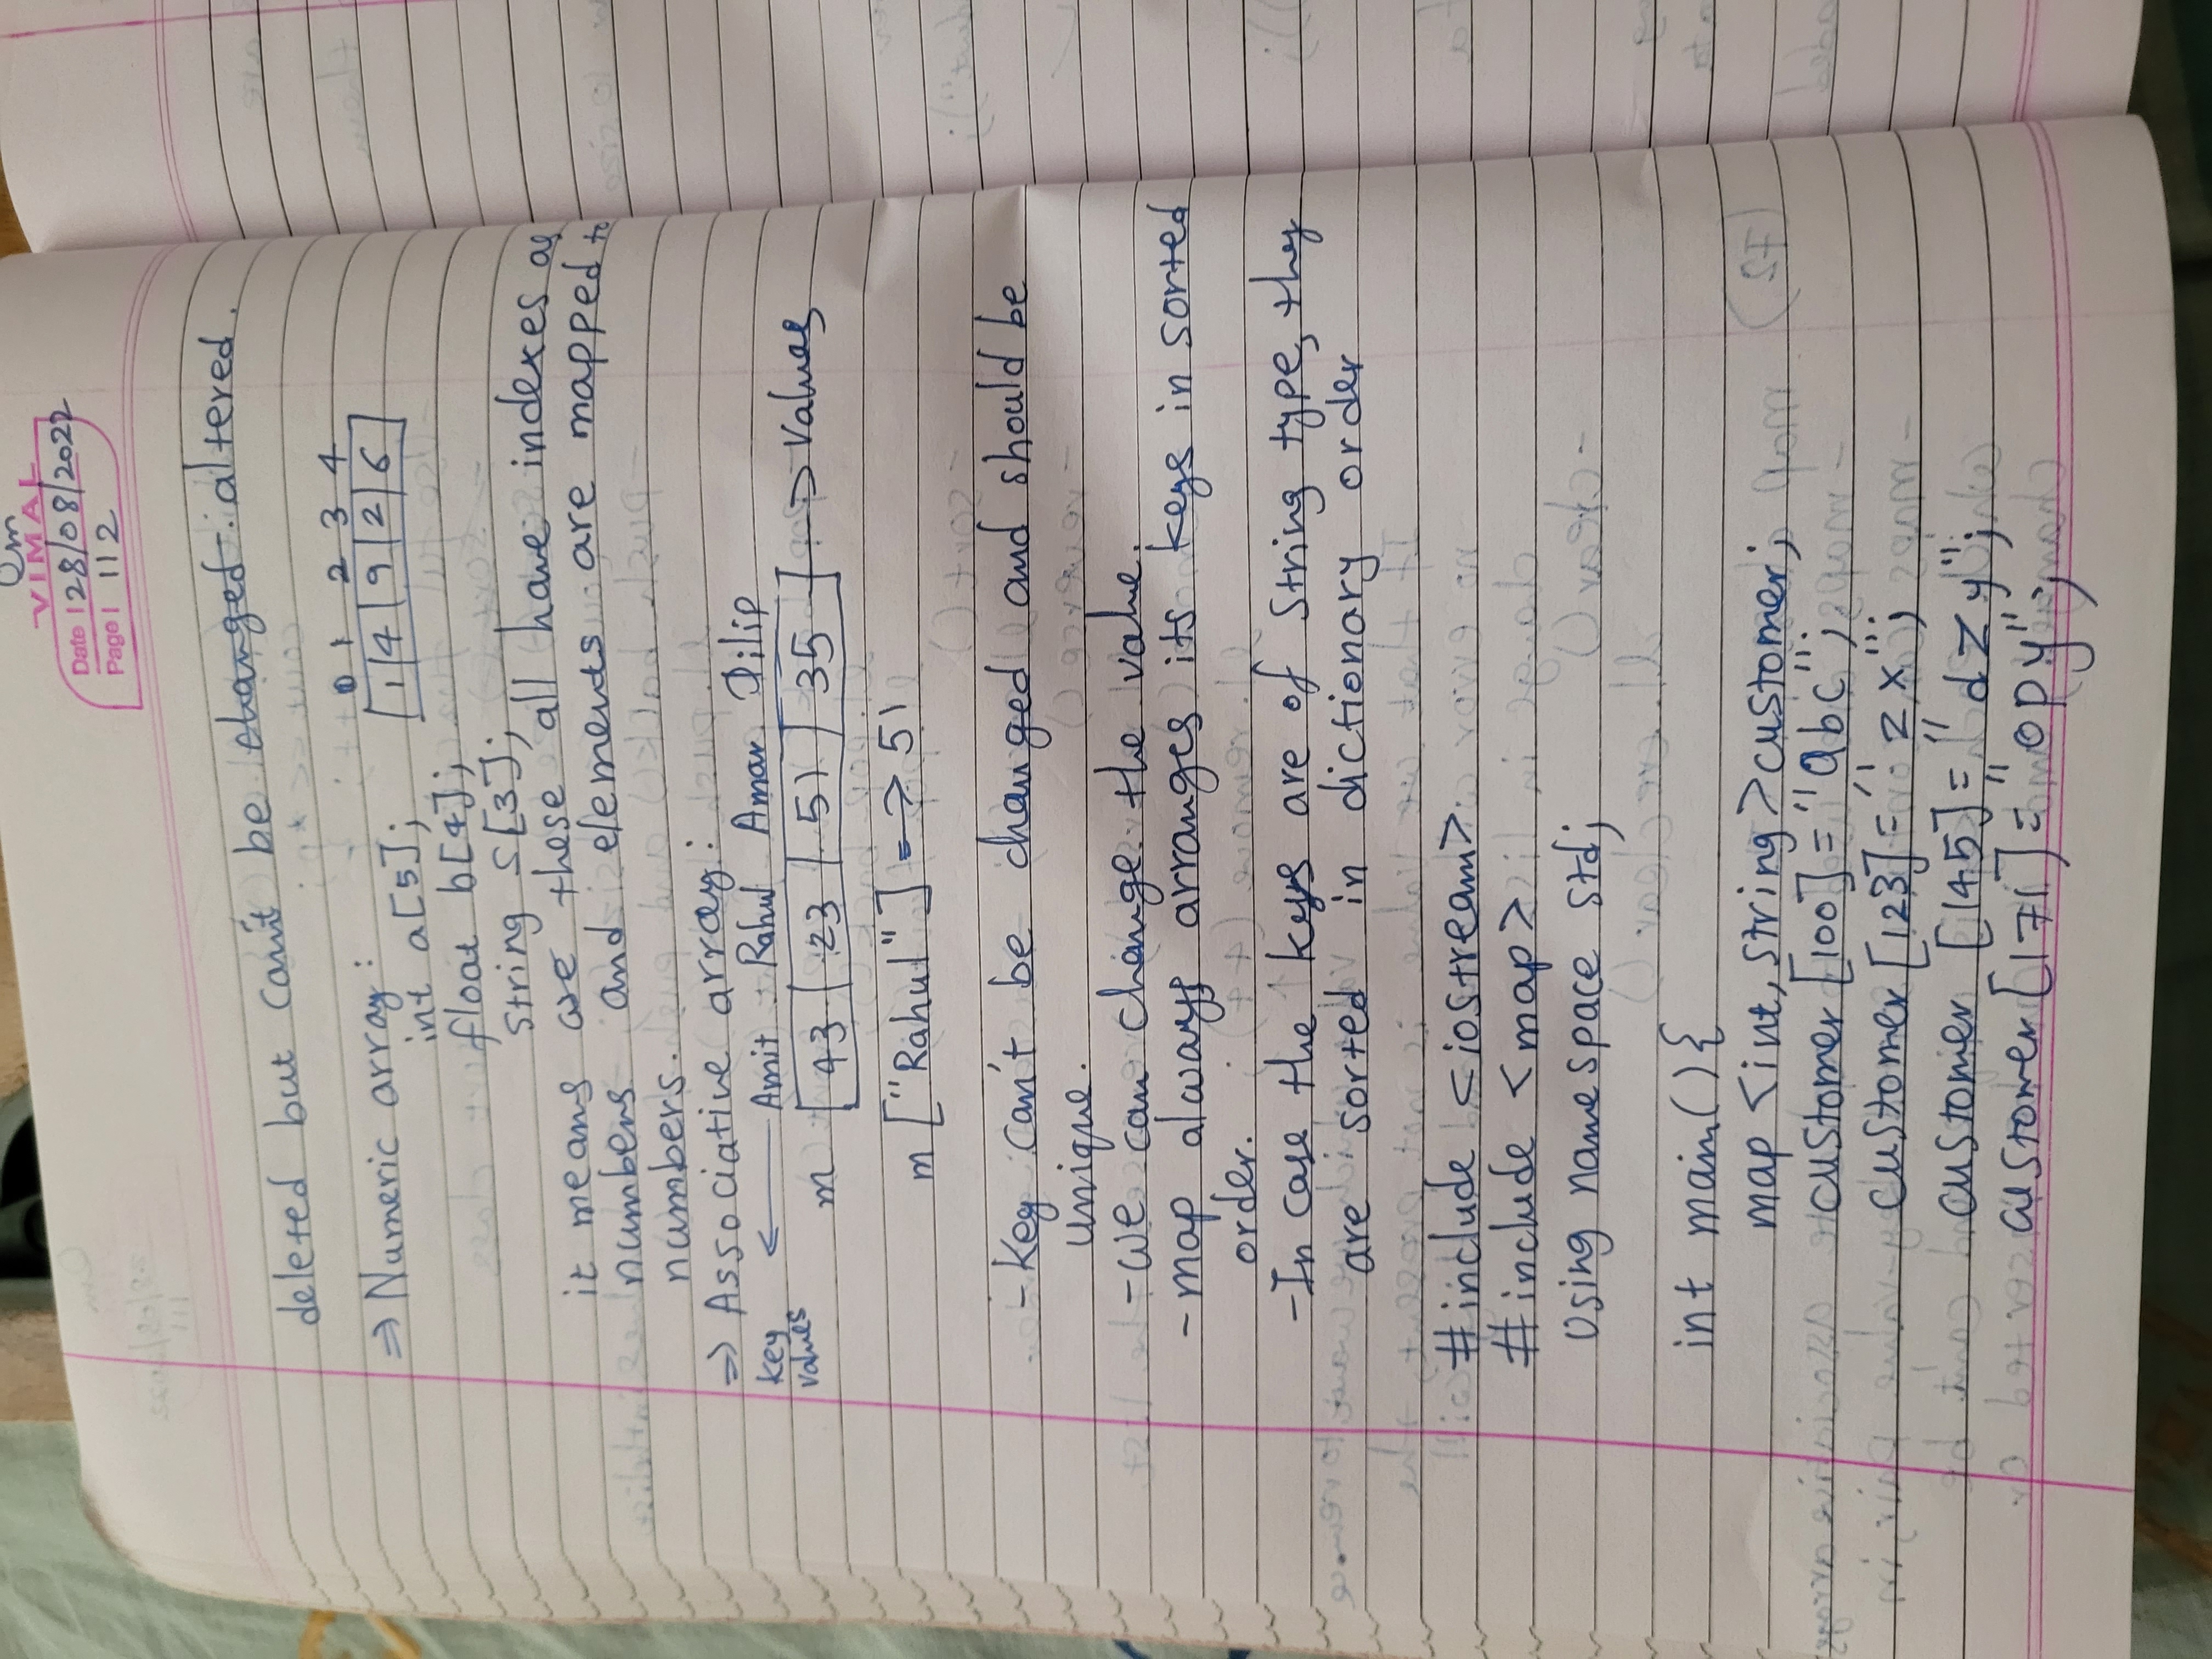 Om
VIMAL
Date | 28/08/2022
Page | 112
deleted but can't be changed. altered.
⇒ Numeric array:
0 1 2 3 4
1 4 9 2 6
int a[5];
float b[4];
string s[3];
it means we these all have indexes as
numbers and elements are mapped to
numbers.
⇒ Associative array:
key values ← Amit Rahul Amar Dilip
m 43 23 51 35 → values
m ["Rahul"] ⇒ 51
- key can't be changed and should be
unique.
- we can change the value.
- map always arranges its keys in sorted
order.
- In case the keys are of string type, they
are sorted in dictionary order
#include <iostream>
#include <map>
using namespace std;
int main(){
map <int, string> customer;
customer [100] = "abc";
customer [123] = "zx";
customer [145] = "dzy";
customer [171] = "opy";